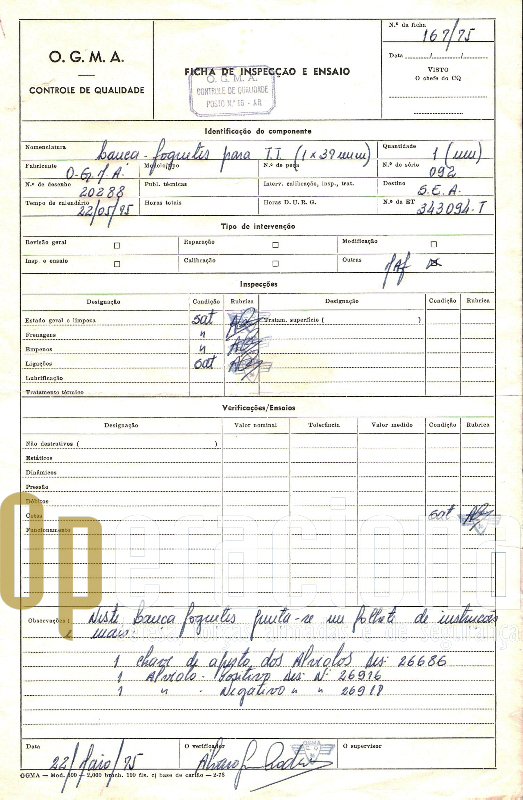 O. G. M. A.
CONTROLE DE QUALIDADE
FICHA DE INSPECÇÃO E ENSAIO
O. G. M. A.
CONTROLE DE QUALIDADE
POSTO N.º 15 - AR
N.º da ficha
167/75
Data
VISTO
O chefe do CQ
Identificação do componente
Nomenclatura
Lança-foguetes para T.T. (1 x 37 mm)
Quantidade
1 (um)
Fabricante
O.G.M.A.
Modelo/tipo
N.º de peça
N.º de série
092
N.º de desenho
20288
Publ. técnicas
Interv. calibração, insp., trat.
Destino
S.E.A.
Tempo de calendário
22/05/75
Horas totais
Horas D.U.R.G.
N.º da ET
343094-T
Tipo de intervenção
Revisão geral
Reparação
Modificação
Insp. e ensaio
Calibração
Outras
Inspecções
Designação
Condição
Rubrica
Designação
Condição
Rubrica
Estado geral e limpeza
sat
Tratam. superfície ( )
Frenagens
"
Empenos
"
Ligações
sat
Lubrificação
Tratamento térmico
Verificações/Ensaios
Designação
Valor nominal
Tolerância
Valor medido
Condição
Rubrica
Não destrutivos ( )
Estáticos
Dinâmicos
Pressão
Débitos
Cotas
sat
Funcionamento
Operacional
Observações: Neste lança foguetes junta-se um folheto de instruções
e mais:
1 chave de ajuste dos Alvéolos des: 26686
1 Alvéolo - Positivo des: N.º 26916
1 " - Negativo " " 26917
Data
22/Maio/75
O verificador
O supervisor
OGMA — Mod. 400 — 2,000 branh. 100 fls. c| base de cartão — 2-75